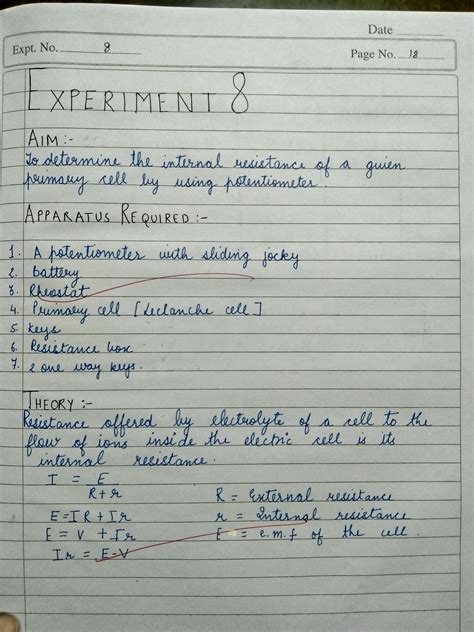 Date
Expt. No. 8
Page No. 18
EXPERIMENT 8
AIM :-
To determine the internal resistance of a guien
primary cell by using potentiometer.
APPARATUS REQUIRED :-
1. A potentiometer with sliding jocky
2. battery
3. Rheostat
4. Primary cell [Leclanche cell]
5. keys
6. Resistance box
7. 2 one way keys.
THEORY :-
Resistance offered by electrolyte of a cell to the
flow of ions inside the electric cell is its
internal resistance.
I = E / R+r
R = External resistance
E = IR + Ir
r = Internal resistance
E = V + Ir
E = e.m.f of the cell.
Ir = E-V